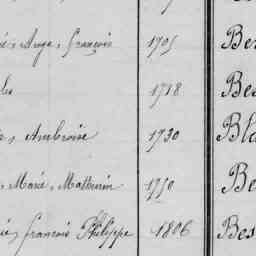 Ange, françois 1705 Be
1718 Bes
Ambroise 1730 Bl
Marie, Mathurin 1750 Be
françois Philippe 1806 Bes